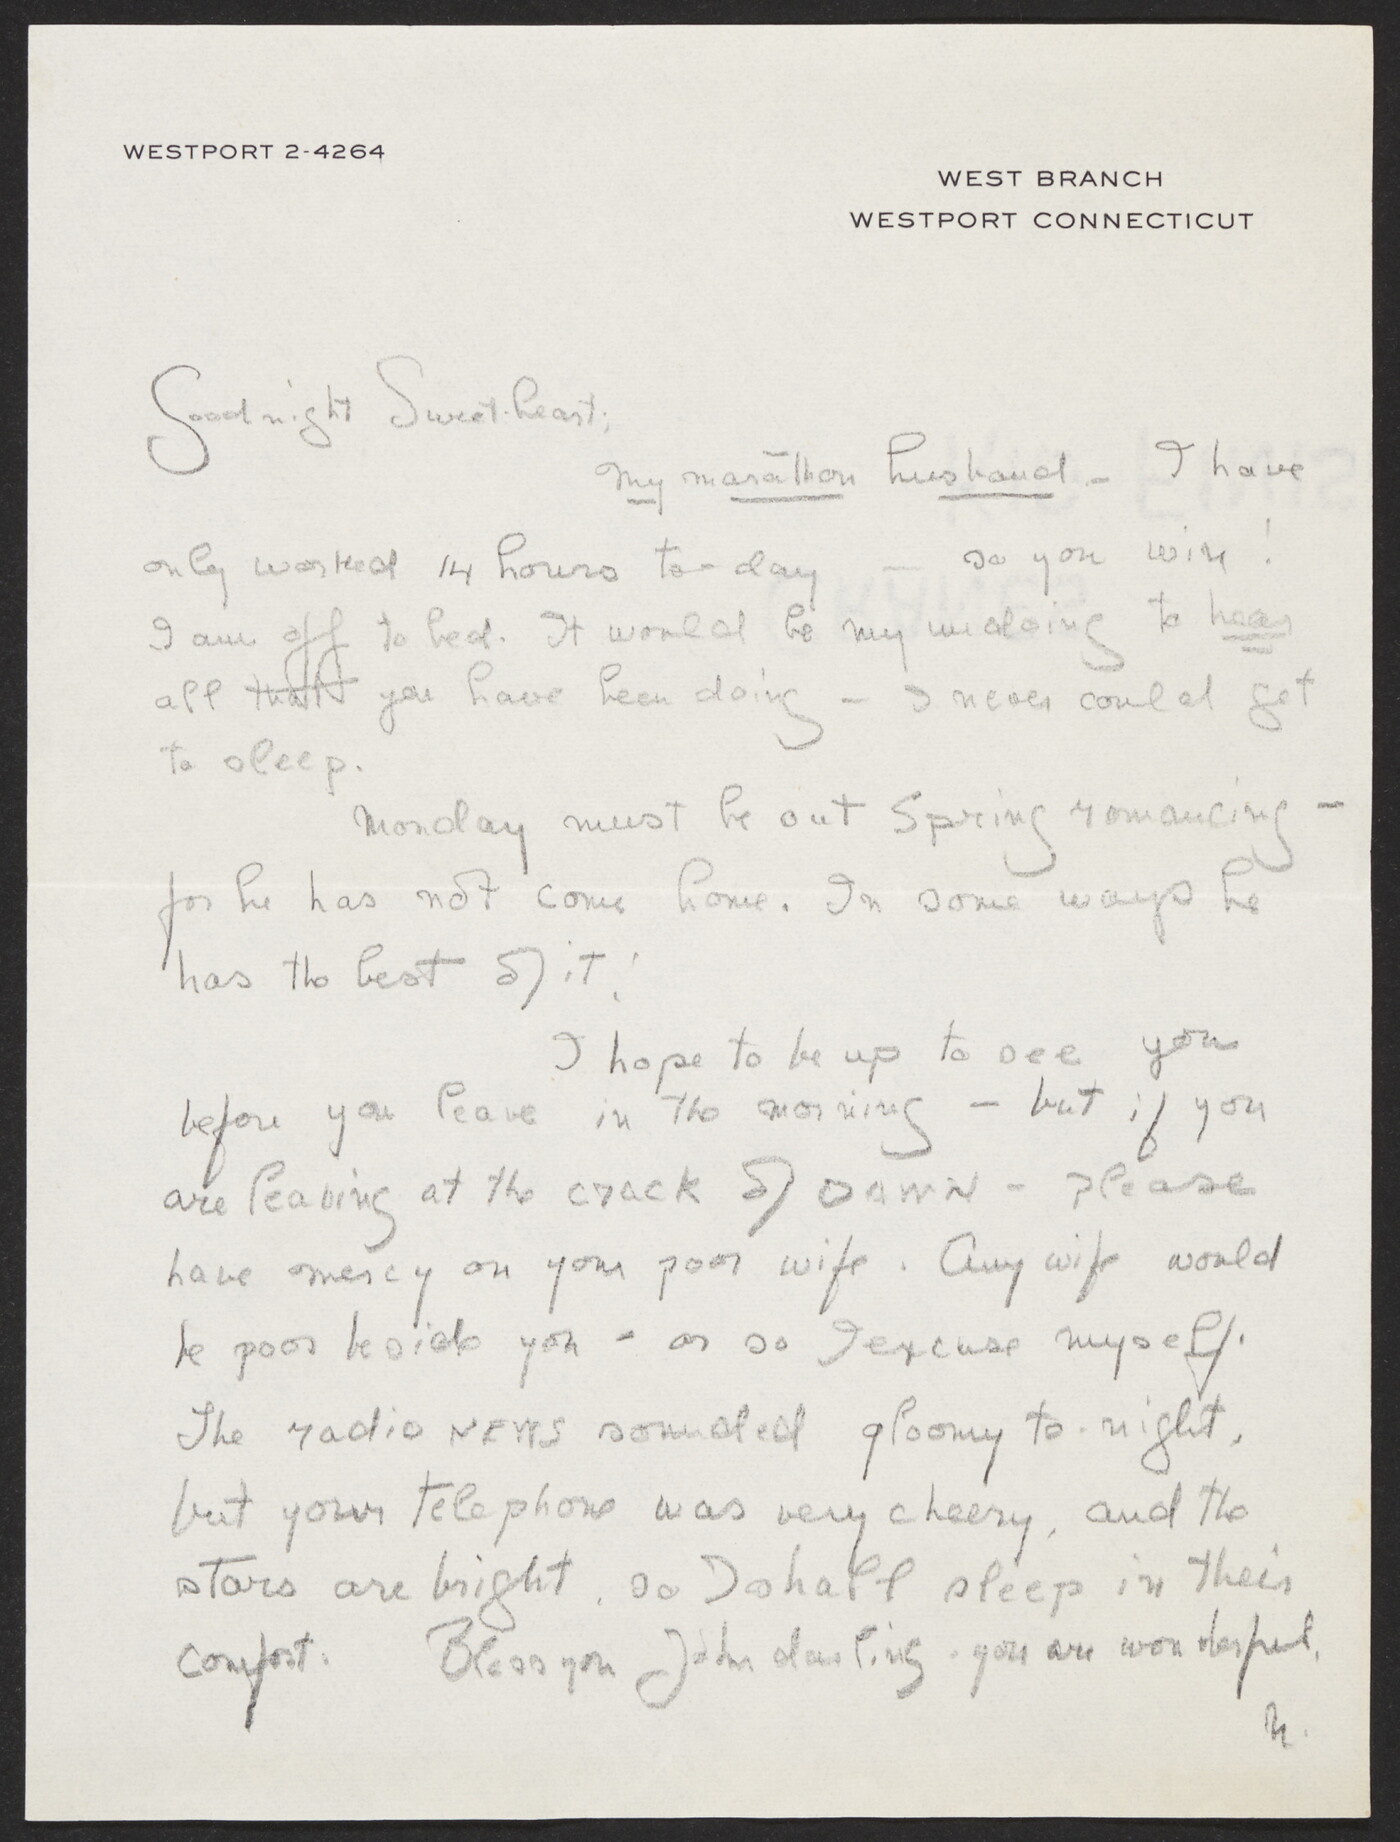 WESTPORT 2-4264
WEST BRANCH
WESTPORT CONNECTICUT
Goodnight Sweet-heart;
My marathon husband - I have
only worked 14 hours to-day - so you win!
I am off to bed. It would be my undoing to hear
all that you have been doing - I never could get
to sleep.
Monday must be out Spring romancing -
for he has not come home. In some ways he
has the best of it!
I hope to be up to see you
before you leave in the morning - but if you
are leaving at the crack of DAWN - please
have mercy on your poor wife. Any wife would
be poor beside you - or so I excuse myself.
The radio NEWS sounded gloomy to-night,
but your telephone was very cheery, and the
stars are bright, so I shall sleep in their
comfort. Bless you John darling - you are wonderful.